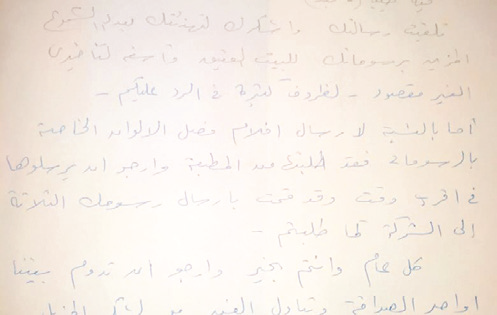 تلقيت رسالتك واشكرك لتهنئتك بعيد
المزيد برسوماتك للبيت لعتيق واسف لتأخيري
الغير مقصود - لظروف كثيرة في الرد عليكم -
أما بالنسبة لارسال افلام فصل الالوان الخاصة
بالرسومات فقد طلبتها من المطبعة وارجو ان يرسلوها
في اقرب وقت وقد قمت بارسال رسومك الثلاثة
إلى الشركة كما طلبتم -
كل عام وانتم بخير وارجو ان تدوم بيننا
اواصر الصداقة وتبادل الفنون مع